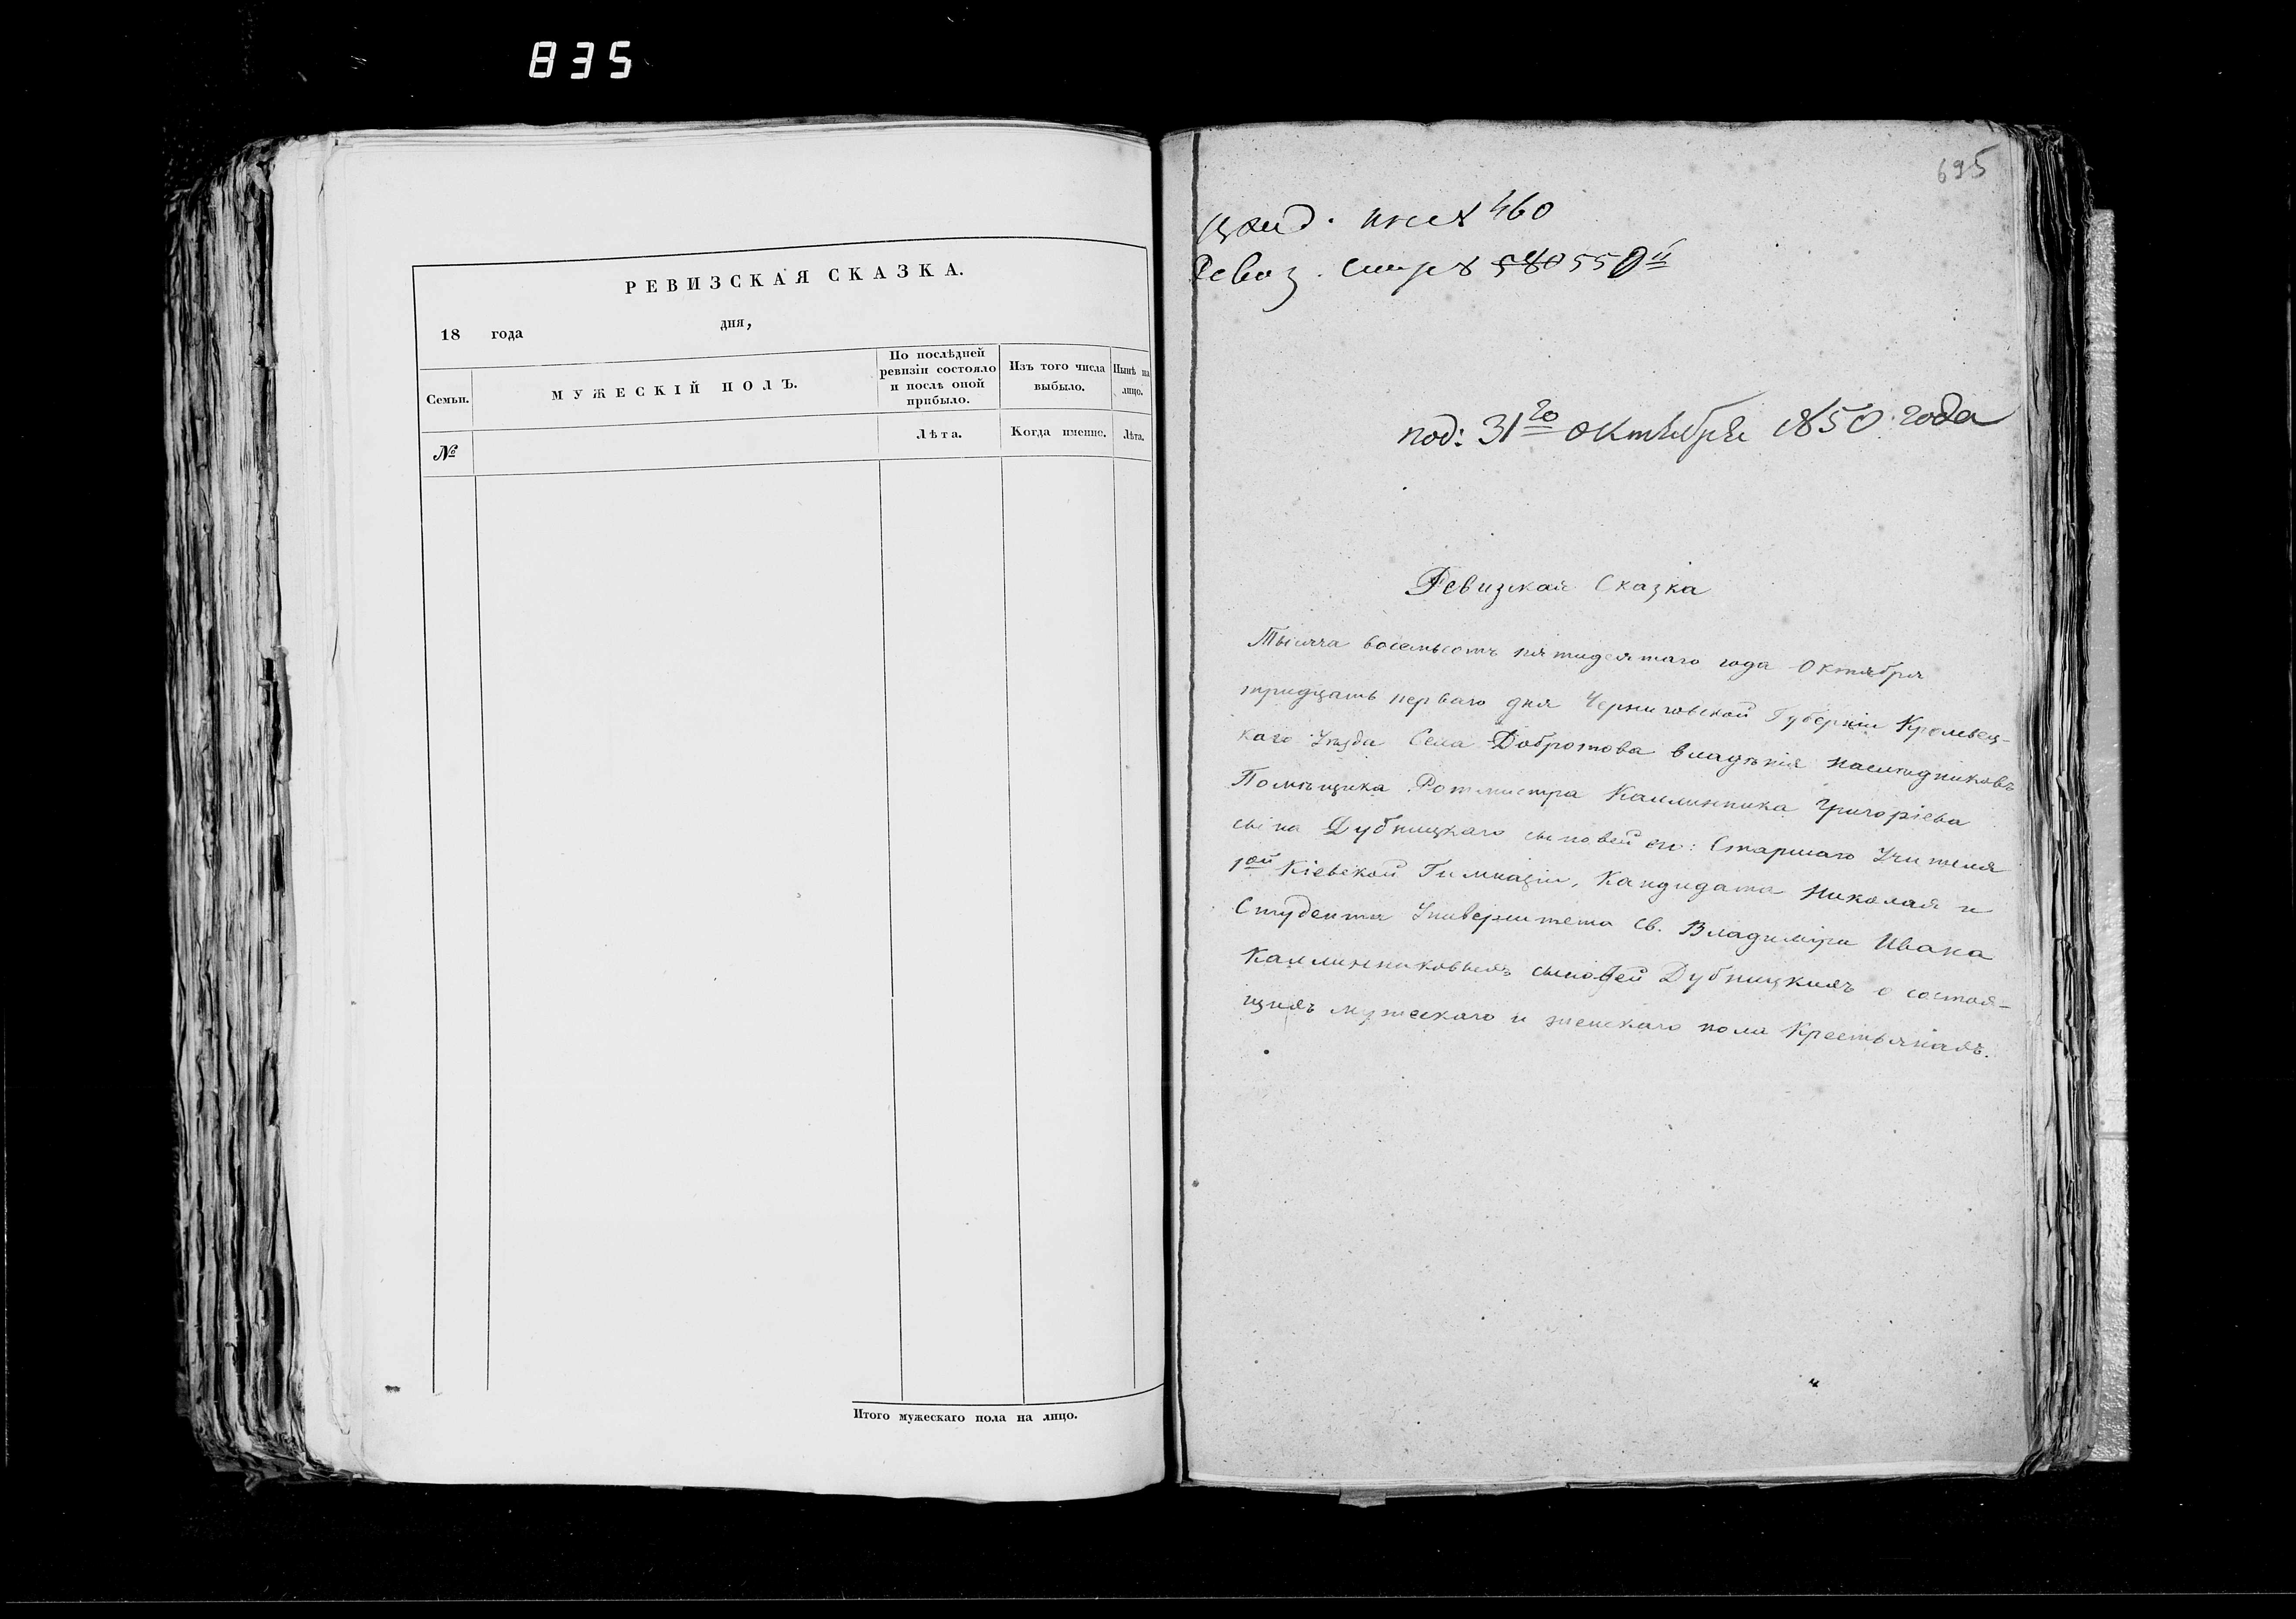 835
РЕВИЗСКАЯ СКАЗКА.
18 года дня,
Семьи.
МУЖЕСКІЙ ПОЛЪ.
По послѣдней ревизіи состояло и послѣ оной прибыло.
Изъ того числа выбыло.
Нынѣ на лицо.
№
Лѣта.
Когда именно.
Лѣта.
Итого мужескаго пола на лицо.
695
460
под: 31го Октября 1850 года
Ревизкая Сказка
Тысяча восемьсотъ пятидесятаго года Октября
тридцать перваго дня Черниговской Губерніи Кролевец-
каго Уѣзда Села Добротова владѣнія наслѣдниковъ
Помѣщика Ротмистра Каллинника Григоріева
сына Дубницкаго сыновей его: Старшаго Учителя
1ой Кіевской Гимназіи, Кандидата Николая и
Студента Университета Св. Владиміра Ивана
Каллинниковыхъ сыновей Дубницкихъ о состоя-
щихъ мужескаго и женскаго пола Крестьянахъ.